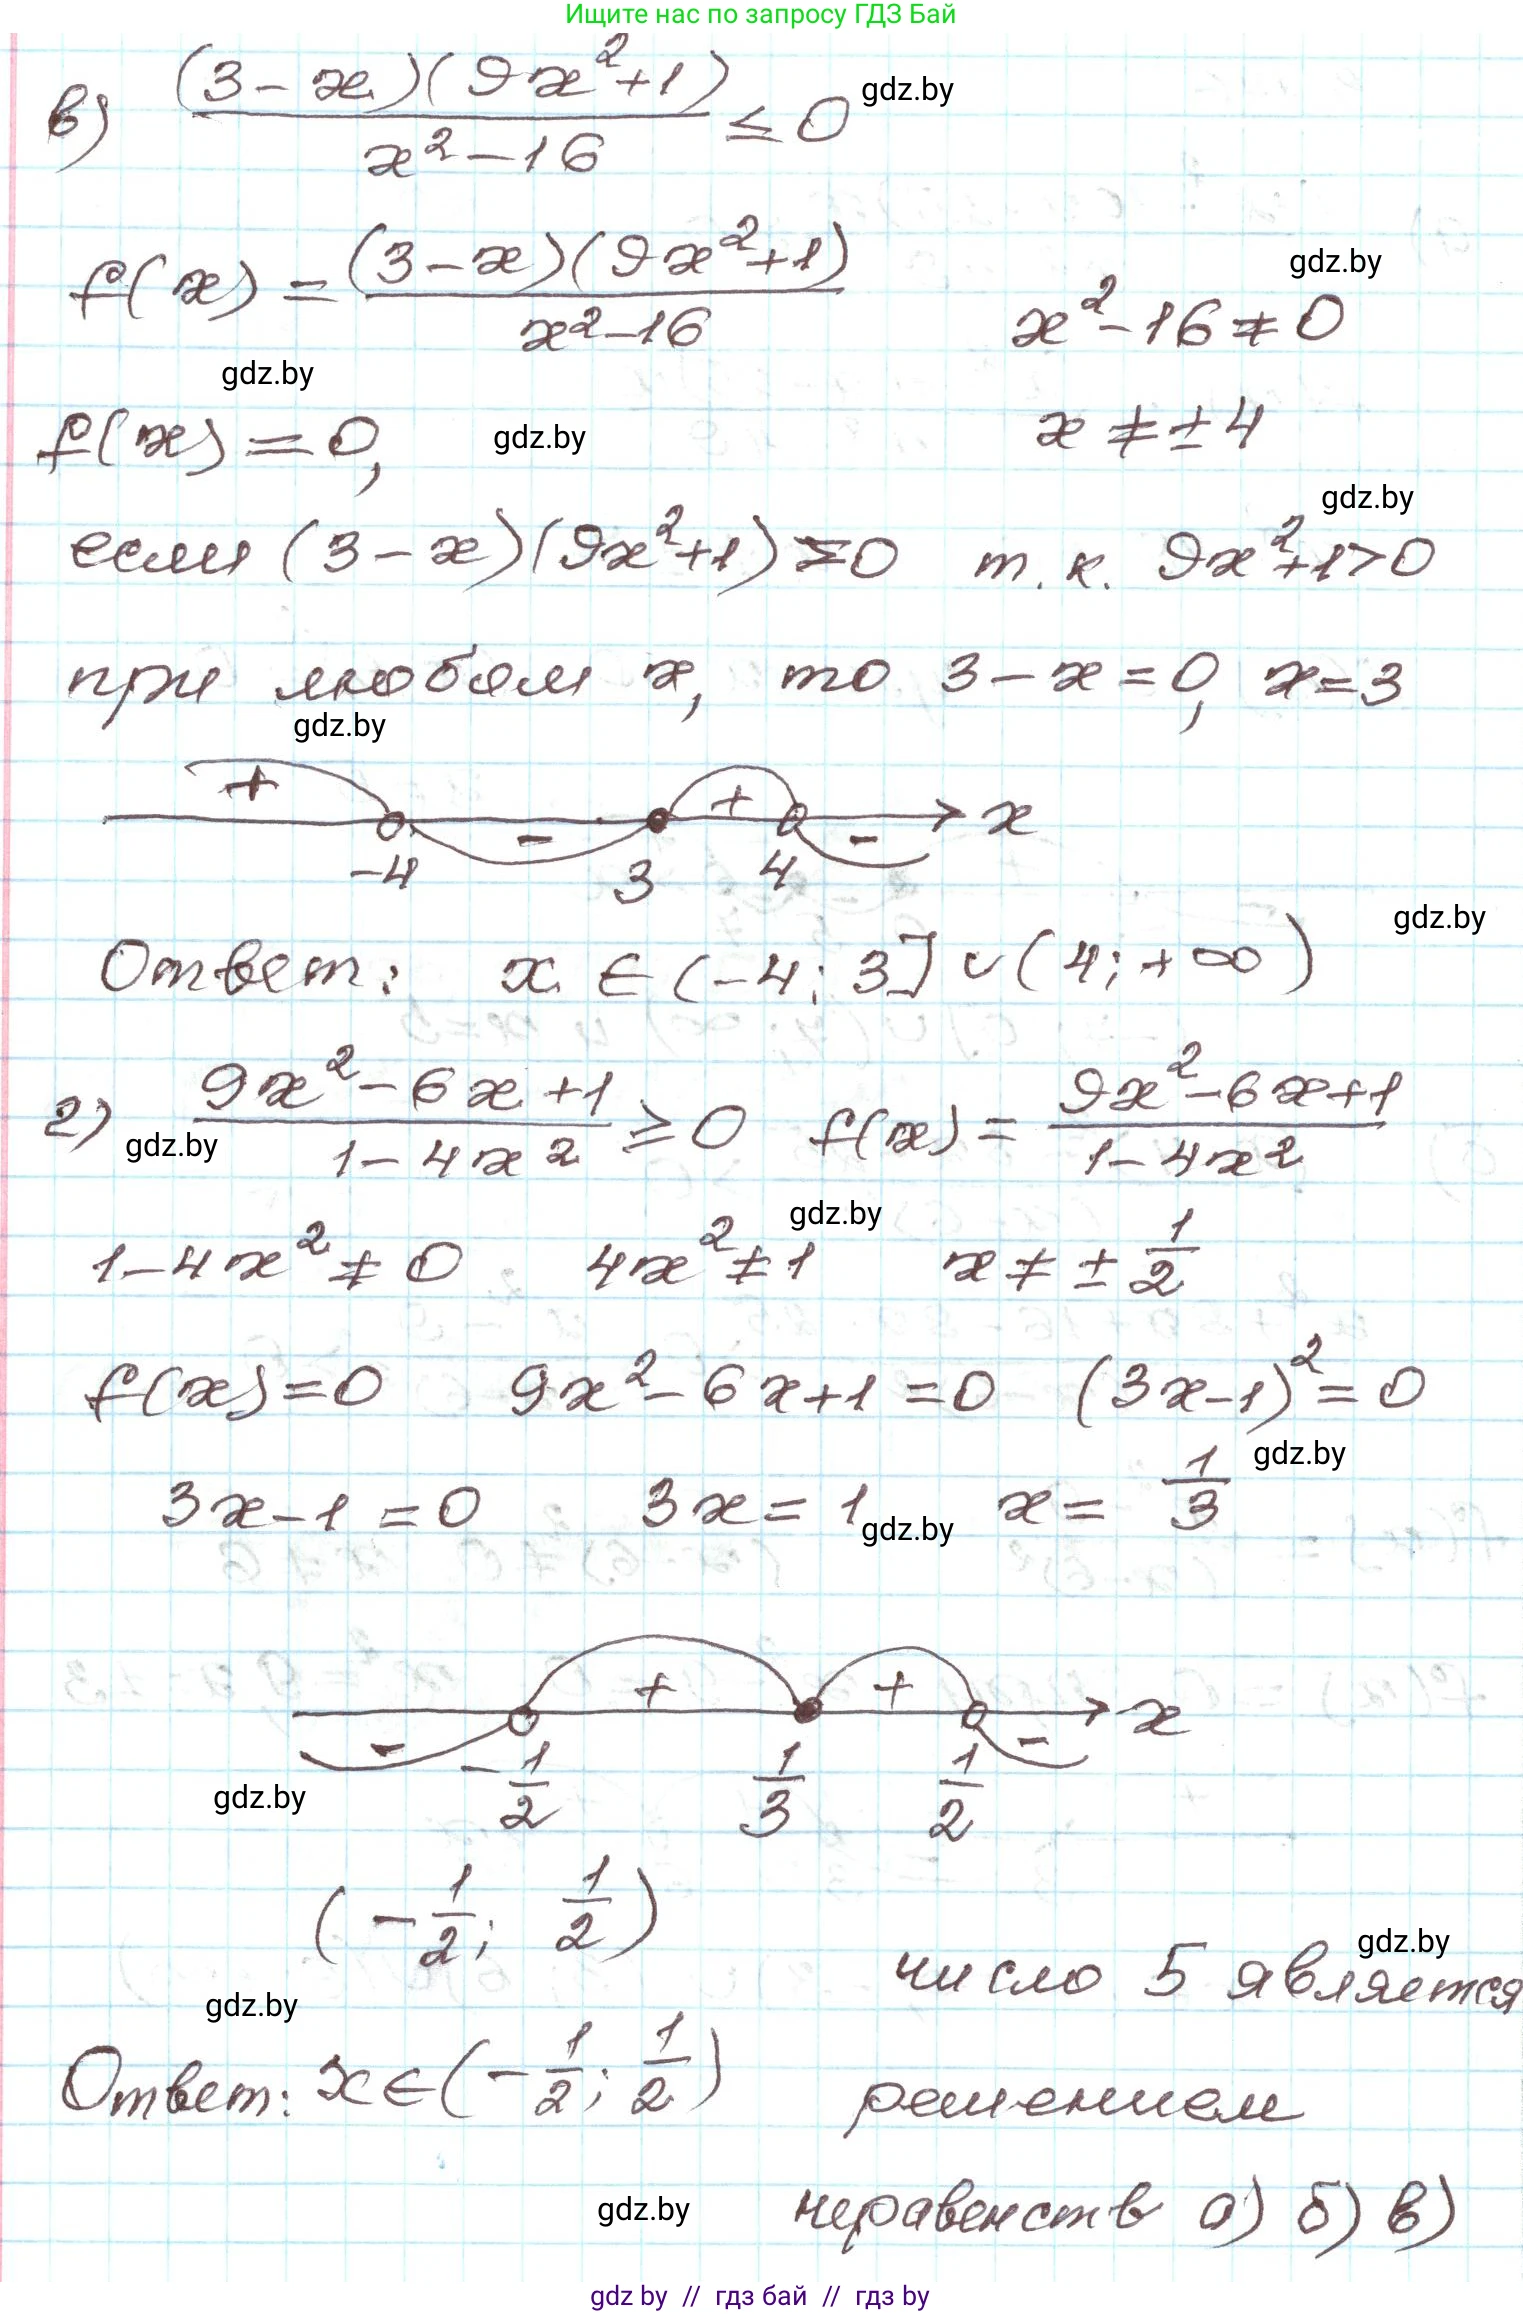 Ищите нас по запросу ГДЗ Бай
в) (3-x)(9x²+1)/(x²-16) ≤ 0 gdz.by
f(x) = (3-x)(9x²+1)/(x²-16) gdz.by
x²-16≠0
gdz.by
f(x)=0, gdz.by x≠±4
gdz.by
если (3-x)(9x²+1)=0 т.к. 9x²+1>0
при любом x, то 3-x=0, x=3
gdz.by
+ - + - x
-4 3 4
gdz.by
Ответ: x∈(-4; 3]∪(4; +∞)
г) (9x²-6x+1)/(1-4x²) ≥ 0 f(x) = (9x²-6x+1)/(1-4x²)
gdz.by
gdz.by
1-4x²≠0 4x²≠1 x≠±1/2
f(x)=0 9x²-6x+1=0 (3x-1)²=0
gdz.by
3x-1=0 3x=1 x=1/3
gdz.by
- + + - x
-1/2 1/3 1/2
gdz.by
(-1/2; 1/2)
gdz.by
число 5 является
gdz.by
Ответ: x∈(-1/2; 1/2) решением
gdz.by неравенств а) б) в)
gdz by // гдз бай // гдз by